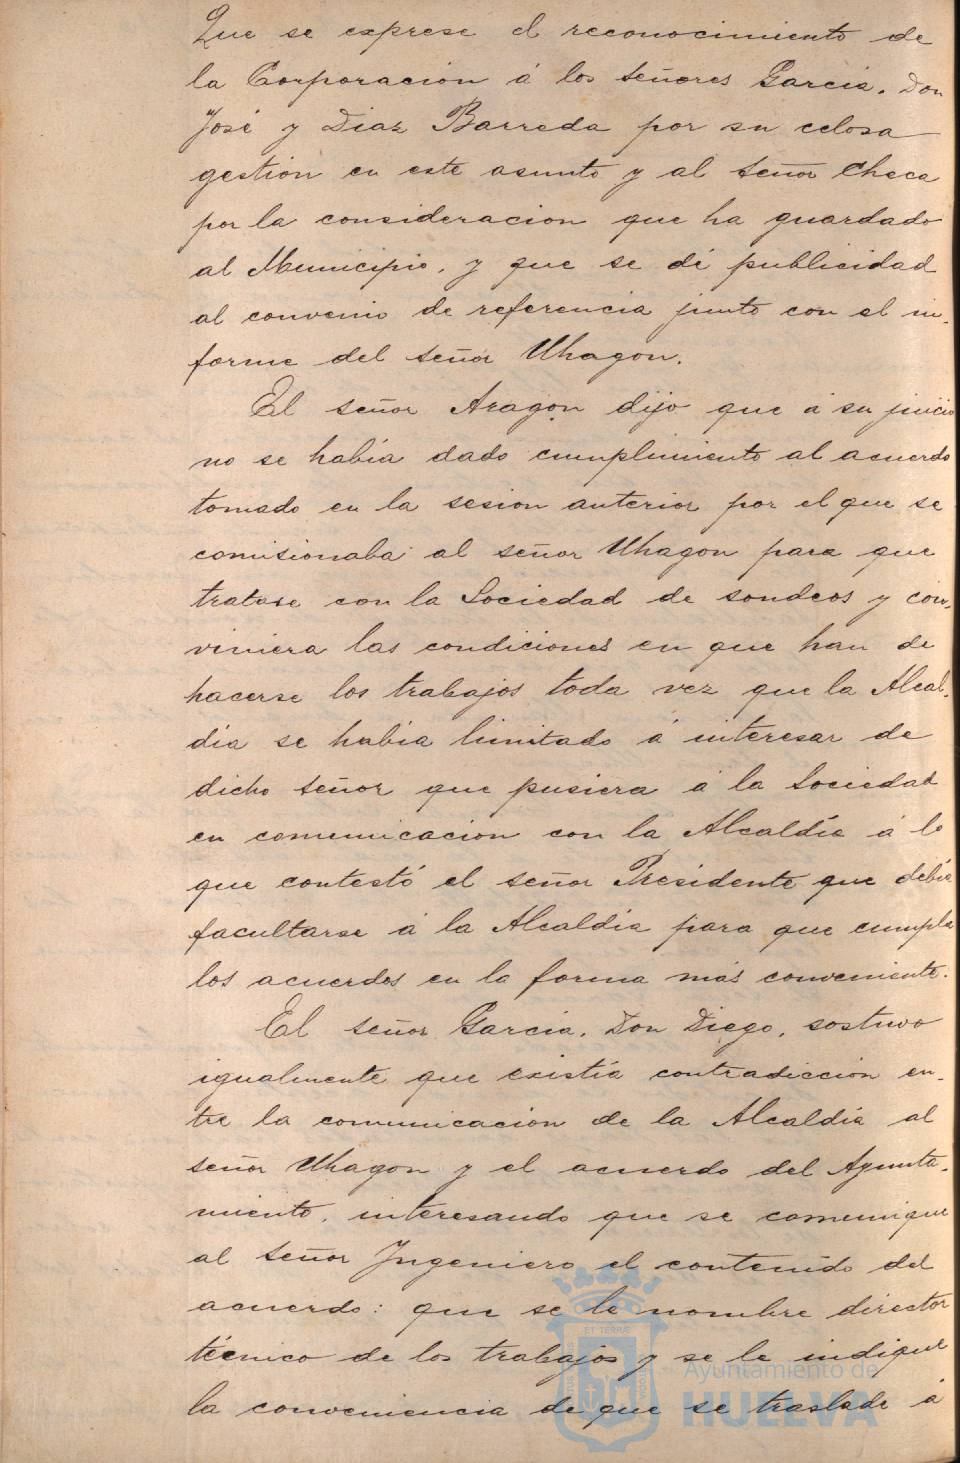 Que se exprese el reconocimiento de
la Corporación á los señores García, Don
José y Diaz Barreda por su celosa
gestión en este asunto y al señor Checa
por la consideracion que ha guardado
al Municipio, y que se dé publicidad
al convenio de referencia junto con el in-
forme del señor Uhagon.
El señor Aragon dijo que á su juicio
no se había dado cumplimiento al acuerdo
tomado en la sesion anterior por el que se
comisionaba al señor Uhagon para que
tratase con la Sociedad de sondeos y con-
viniera las condiciones en que han de
hacerse los trabajos toda vez que la Alcal-
día se habia limitado á interesar de
dicho señor que pusiera á la Sociedad
en comunicacion con la Alcaldía á lo
que contestó el señor Presidente que debía
facultarse á la Alcaldía para que cumpla
los acuerdos en la forma más conveniente.
El señor García, Don Diego, sostuvo
igualmente que existía contradicción en-
tre la comunicacion de la Alcaldía al
señor Uhagon y el acuerdo del Ayunta-
miento, interesando que se comunique
al señor Ingeniero el contenido del
acuerdo: que se le nombre director
técnico de los trabajos y se le indique
la conveniencia de que se traslade á
Ayuntamiento de
HUELVA